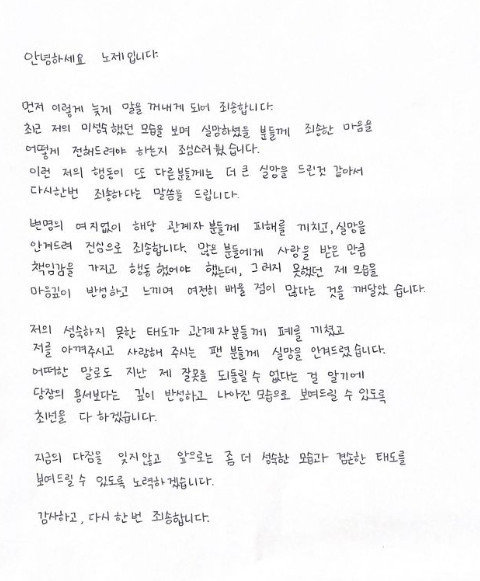 안녕하세요 노제입니다.
먼저 이렇게 늦게 말을 꺼내게 되어 죄송합니다.
최근 저의 미성숙했던 모습을 보며 실망하셨을 분들께 죄송한 마음을
어떻게 전해드려야 하는지 조심스러웠습니다.
이런 저의 행동이 또 다른분들께는 더 큰 실망을 드린것 같아서
다시한번 죄송하다는 말씀을 드립니다.
변명의 여지없이 해당 관계자 분들께 피해를 끼치고, 실망을
안겨드려 진심으로 죄송합니다. 많은 분들에게 사랑을 받은 만큼
책임감을 가지고 행동 했어야 했는데, 그러지 못했던 제 모습을
마음깊이 반성하고 느끼며 여전히 배울 점이 많다는 것을 깨달았습니다.
저의 성숙하지 못한 태도가 관계자분들께 폐를 끼쳤고
저를 아껴주시고 사랑해 주시는 팬 분들께 실망을 안겨드렸습니다.
어떠한 말로도 지난 제 잘못을 되돌릴 수 없다는 걸 알기에
당장의 용서보다는 깊이 반성하고 나아진 모습으로 보여드릴 수 있도록
최선을 다 하겠습니다.
지금의 다짐을 잊지않고 앞으로는 좀 더 성숙한 모습과 겸손한 태도를
보여드릴 수 있도록 노력하겠습니다.
감사하고, 다시 한번 죄송합니다.